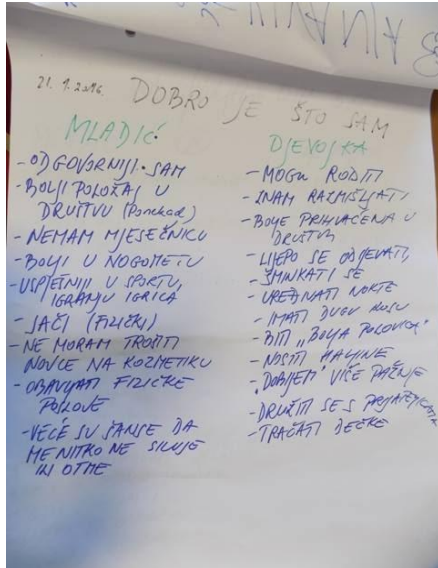 21. 9. 2016. DOBRO JE ŠTO SAM
MLADIĆ
- ODGOVORNIJI SAM
- BOLJI POLOŽAJ U
DRUŠTVU (Ponekad)
- NEMAM MJESEČNICU
- BOLJI U NOGOMETU
- USPJEŠNIJI U SPORTU,
IGRANJU IGRICA
- JAČI (FIZIČKI)
- NE MORAM TROŠITI
NOVCE NA KOZMETIKU
- OBAVLJATI FIZIČKE
POSLOVE
- VEĆE SU ŠANSE DA
ME NITKO NE SILUJE
ILI OTME
DJEVOJKA
- MOGU RODITI
- ZNAM RAZMIŠLJATI
- BOLJE PRIHVAĆENA U
DRUŠTVU
- LIJEPO SE ODIJEVATI,
ŠMINKATI SE
- UREĐIVATI NOKTE
- IMATI DUGU KOSU
- BITI "BOLJA POLOVICA"
- NOSITI HALJINE
- "DOBIJEM" VIŠE PAŽNJE
- DRUŽITI SE S PRIJATELJICAMA
- TRAČATI DEČKE